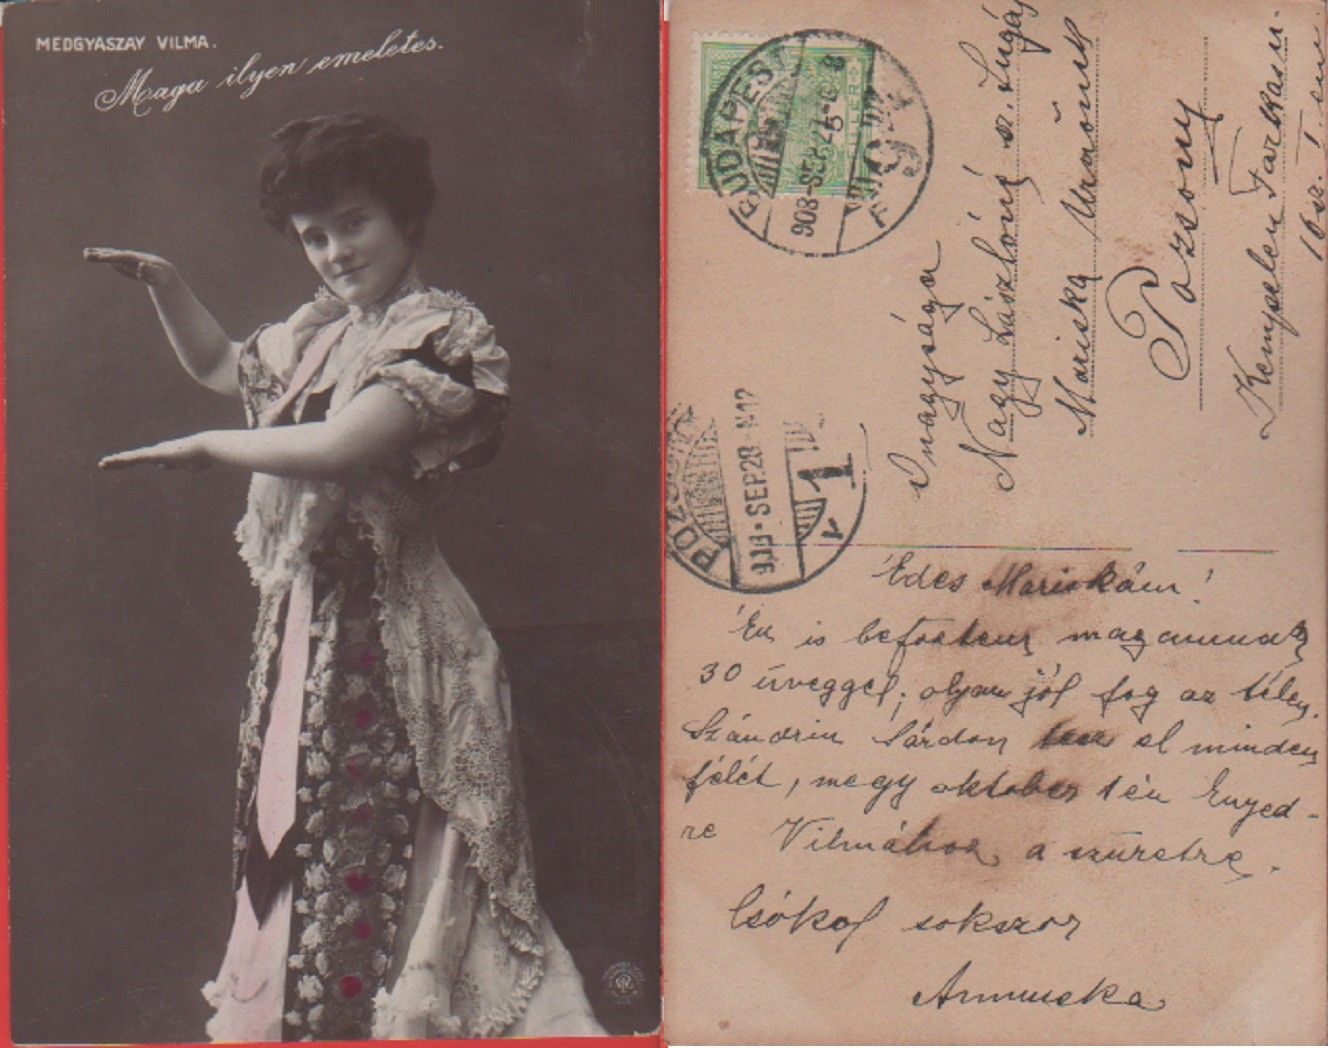 MEDGYASZAY VILMA.
Maga ilyen emeletes.
BUDAPEST
908 SEP. 27
FILLÉR
6
F
POZSONY
908 SEP. 28 N12
1
Nagysága
Nagy Lászlóné sz. Lugáj
Mariska Urnőnek
Pozsony
Kempelen Farkas u.
10 sz. I. em
Édes Mariskám!
Én is befőztem magamnak
30 üveggel, olyan jól fog az télen.
Szándrin Sárdon tesz el minden
félét, megy október 1én Enyed-
re Vilmához a szüretre.
Csókol sokszor
Annuska